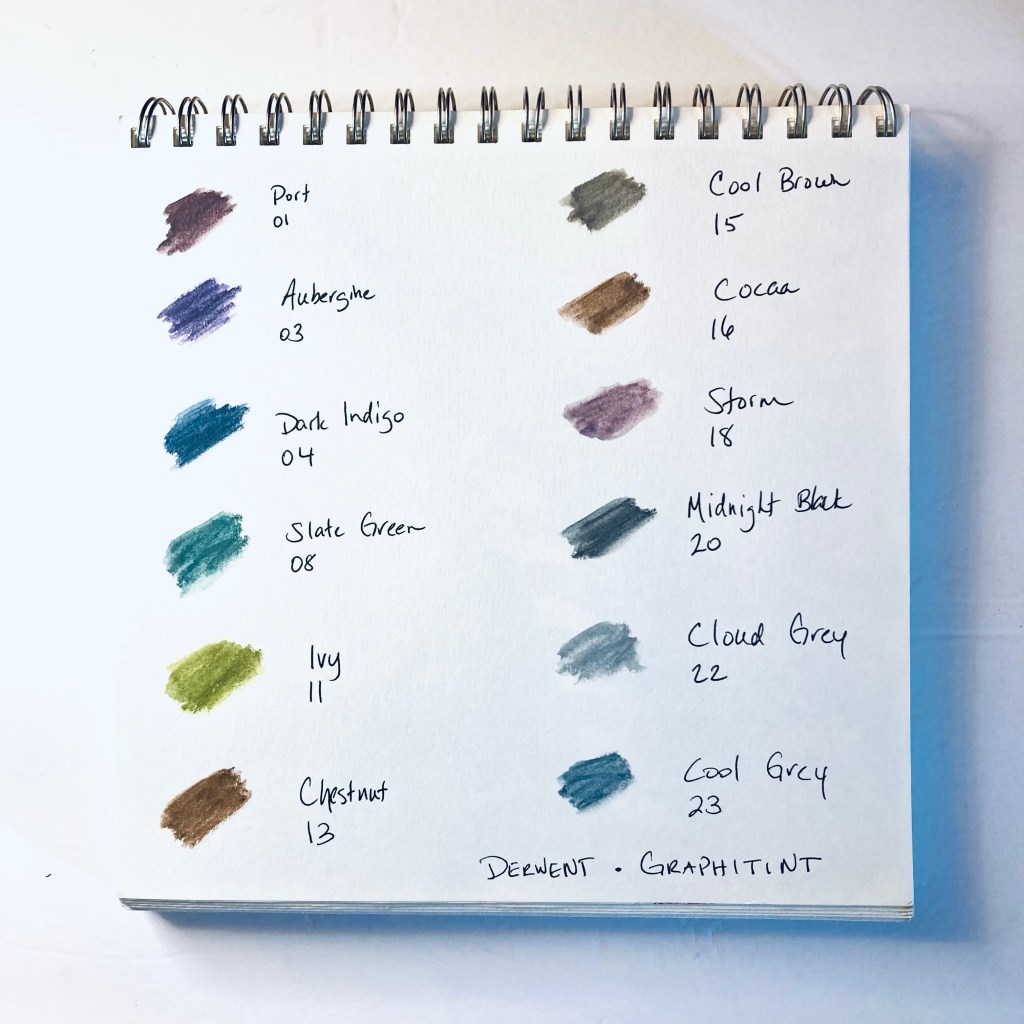 Port
01
Aubergine
03
Dark Indigo
04
Slate Green
08
Ivy
11
Chestnut
13
Cool Brown
15
Cocoa
16
Storm
18
Midnight Black
20
Cloud Grey
22
Cool Grey
23
DERWENT • GRAPHITINT